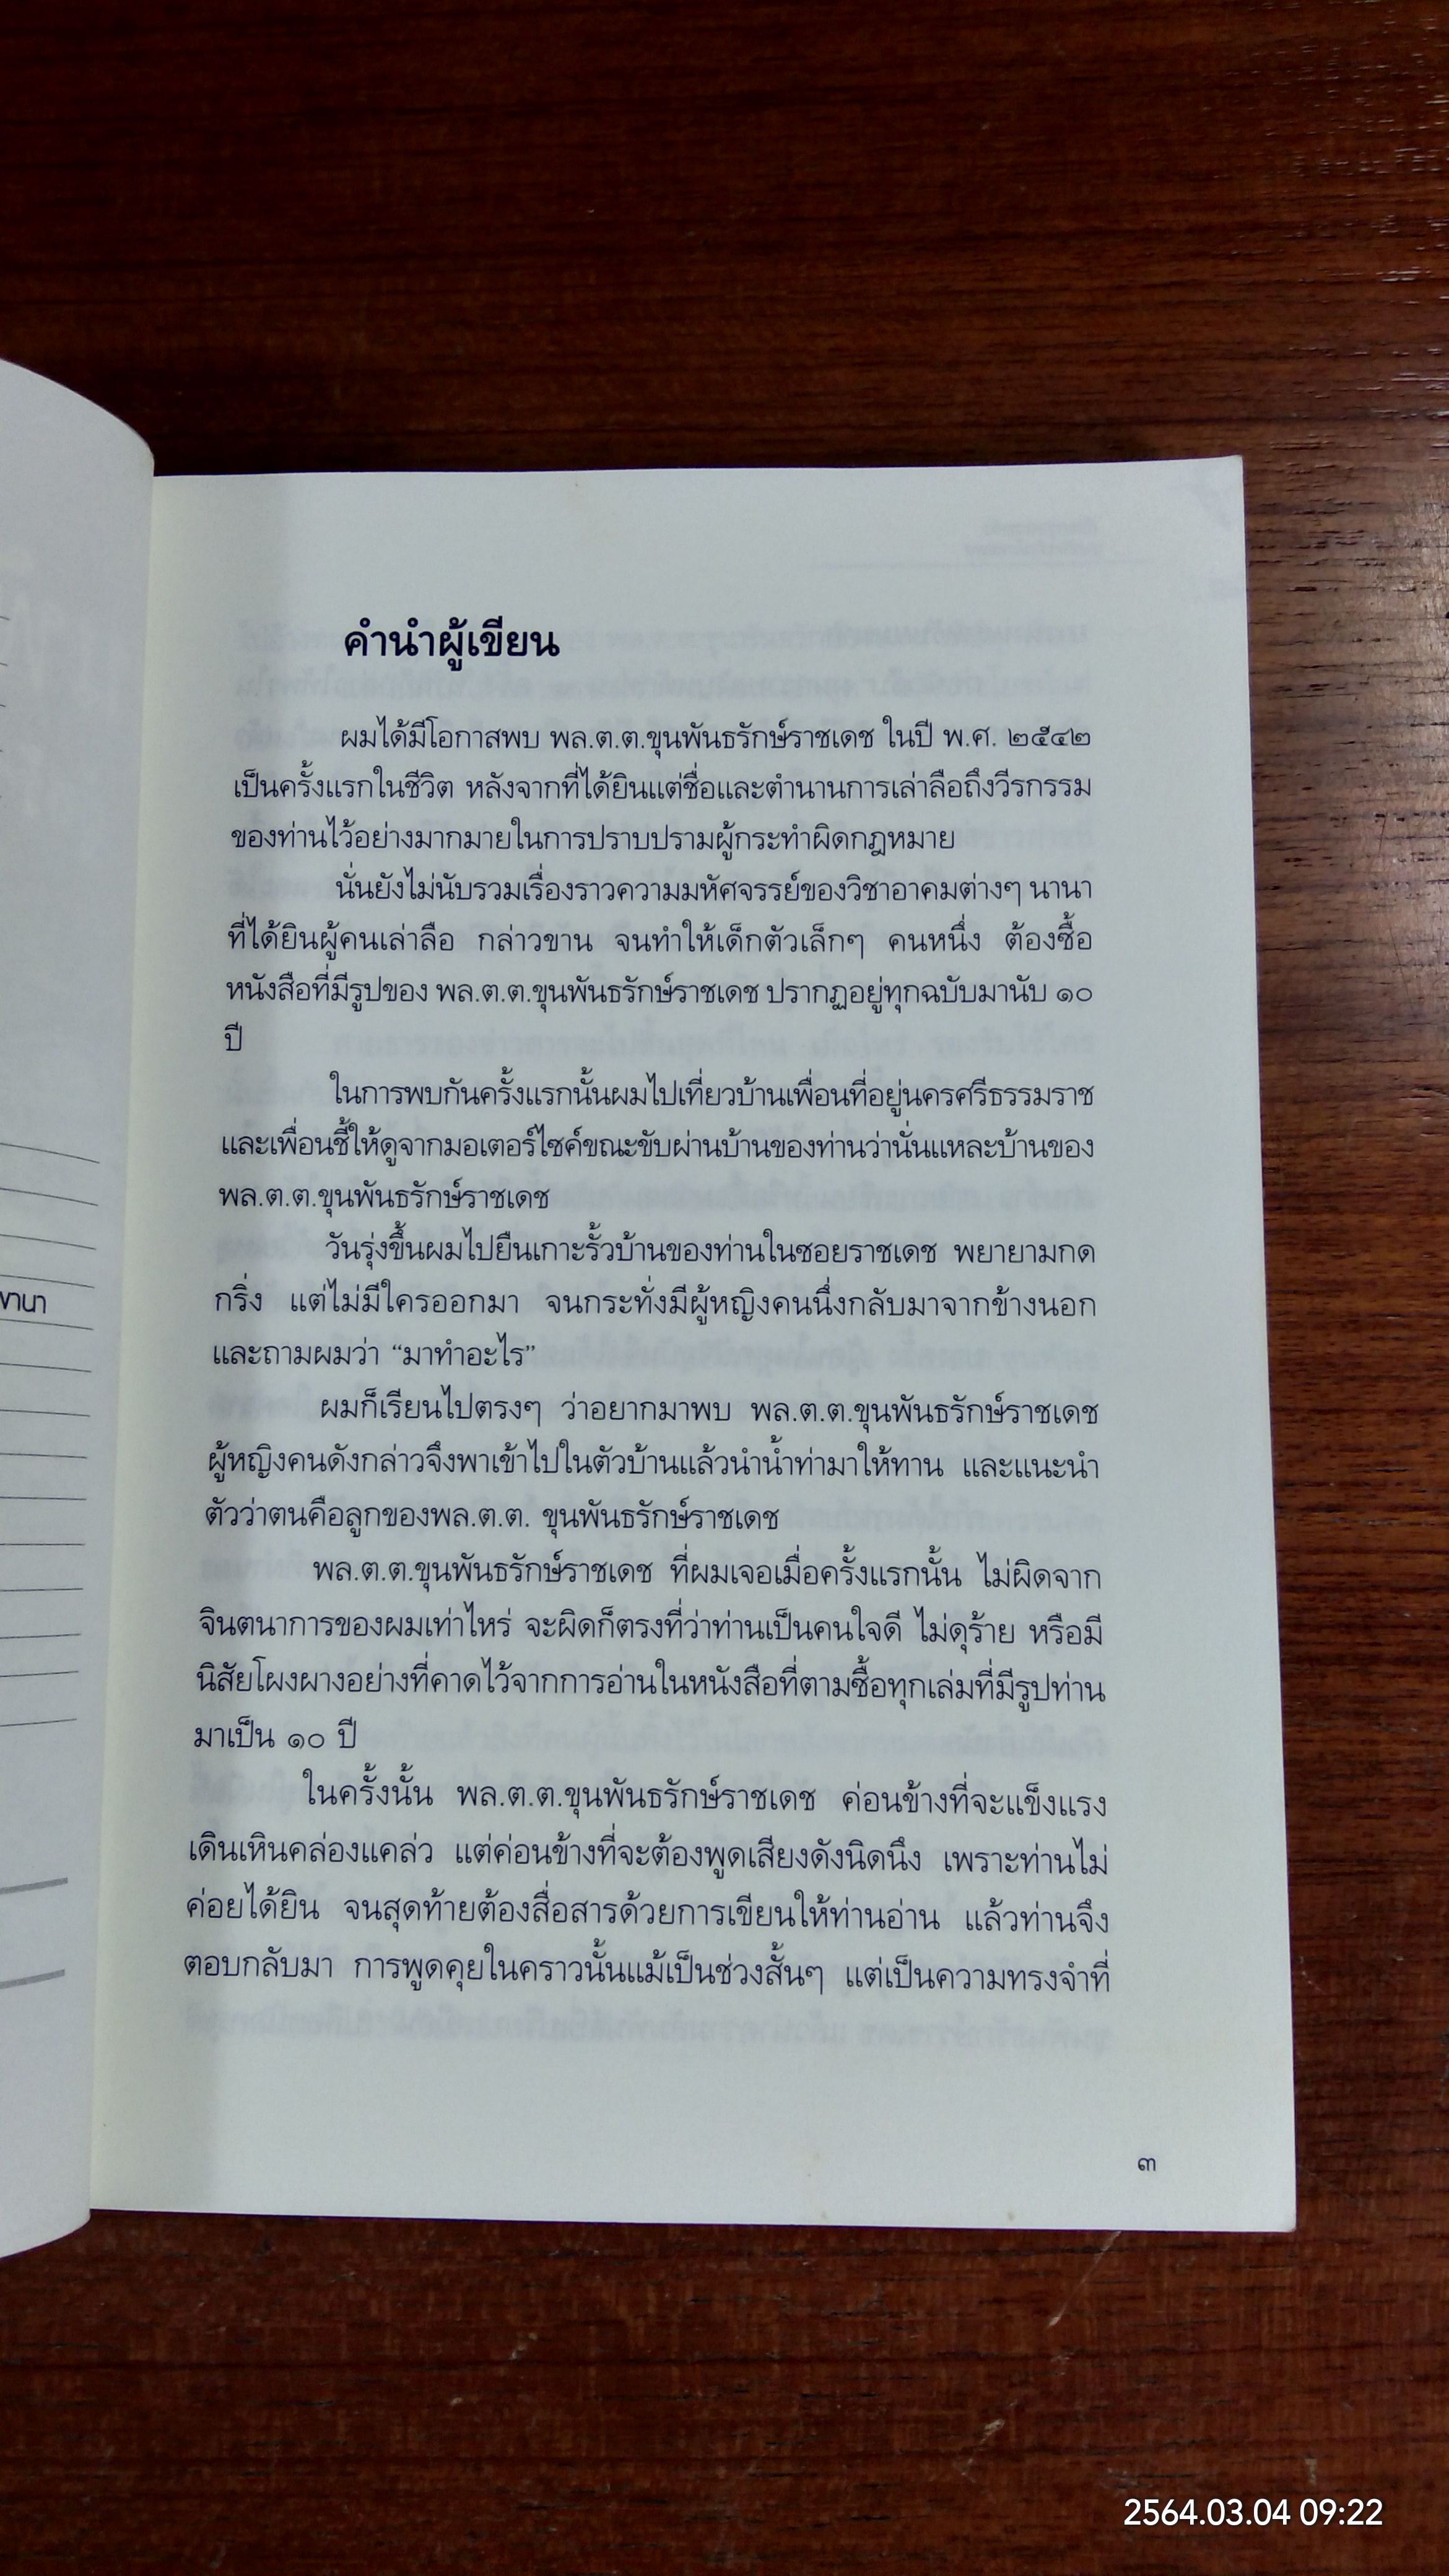 คำนำผู้เขียน
ผมได้มีโอกาสพบ พล.ต.ต.ขุนพันธรักษ์ราชเดช ในปี พ.ศ. ๒๕๔๒
เป็นครั้งแรกในชีวิต หลังจากที่ได้ยินแต่ชื่อและตำนานการเล่าลือถึงวีรกรรม
ของท่านไว้อย่างมากมายในการปราบปรามผู้กระทำผิดกฎหมาย
นั่นยังไม่นับรวมเรื่องราวความมหัศจรรย์ของวิชาอาคมต่างๆ นานา
ที่ได้ยินผู้คนเล่าลือ กล่าวขาน จนทำให้เด็กตัวเล็กๆ คนหนึ่ง ต้องซื้อ
หนังสือที่มีรูปของ พล.ต.ต.ขุนพันธรักษ์ราชเดช ปรากฏอยู่ทุกฉบับมานับ ๑๐
ปี
ในการพบกันครั้งแรกนั้นผมไปเที่ยวบ้านเพื่อนที่อยู่นครศรีธรรมราช
และเพื่อนชี้ให้ดูจากมอเตอร์ไซค์ขณะขับผ่านบ้านของท่านว่านั่นแหละบ้านของ
พล.ต.ต.ขุนพันธรักษ์ราชเดช
วันรุ่งขึ้นผมไปยืนเกาะรั้วบ้านของท่านในซอยราชเดช พยายามกด
กริ่ง แต่ไม่มีใครออกมา จนกระทั่งมีผู้หญิงคนนึ่งกลับมาจากข้างนอก
และถามผมว่า “มาทำอะไร”
ผมก็เรียนไปตรงๆ ว่าอยากมาพบ พล.ต.ต.ขุนพันธรักษ์ราชเดช
ผู้หญิงคนดังกล่าวจึงพาเข้าไปในตัวบ้านแล้วนำน้ำท่ามาให้ทาน และแนะนำ
ตัวว่าตนคือลูกของพล.ต.ต. ขุนพันธรักษ์ราชเดช
พล.ต.ต.ขุนพันธรักษ์ราชเดช ที่ผมเจอเมื่อครั้งแรกนั้น ไม่ผิดจาก
จินตนาการของผมเท่าไหร่ จะผิดก็ตรงที่ว่าท่านเป็นคนใจดี ไม่ดุร้าย หรือมี
นิสัยโผงผางอย่างที่คาดไว้จากการอ่านในหนังสือที่ตามซื้อทุกเล่มที่มีรูปท่าน
มาเป็น ๑๐ ปี
ในครั้งนั้น พล.ต.ต.ขุนพันธรักษ์ราชเดช ค่อนข้างที่จะแข็งแรง
เดินเหินคล่องแคล่ว แต่ค่อนข้างที่จะต้องพูดเสียงดังนิดนึง เพราะท่านไม่
ค่อยได้ยิน จนสุดท้ายต้องสื่อสารด้วยการเขียนให้ท่านอ่าน แล้วท่านจึง
ตอบกลับมา การพูดคุยในคราวนั้นแม้เป็นช่วงสั้นๆ แต่เป็นความทรงจำที่
๓
2564.03.04 09:22